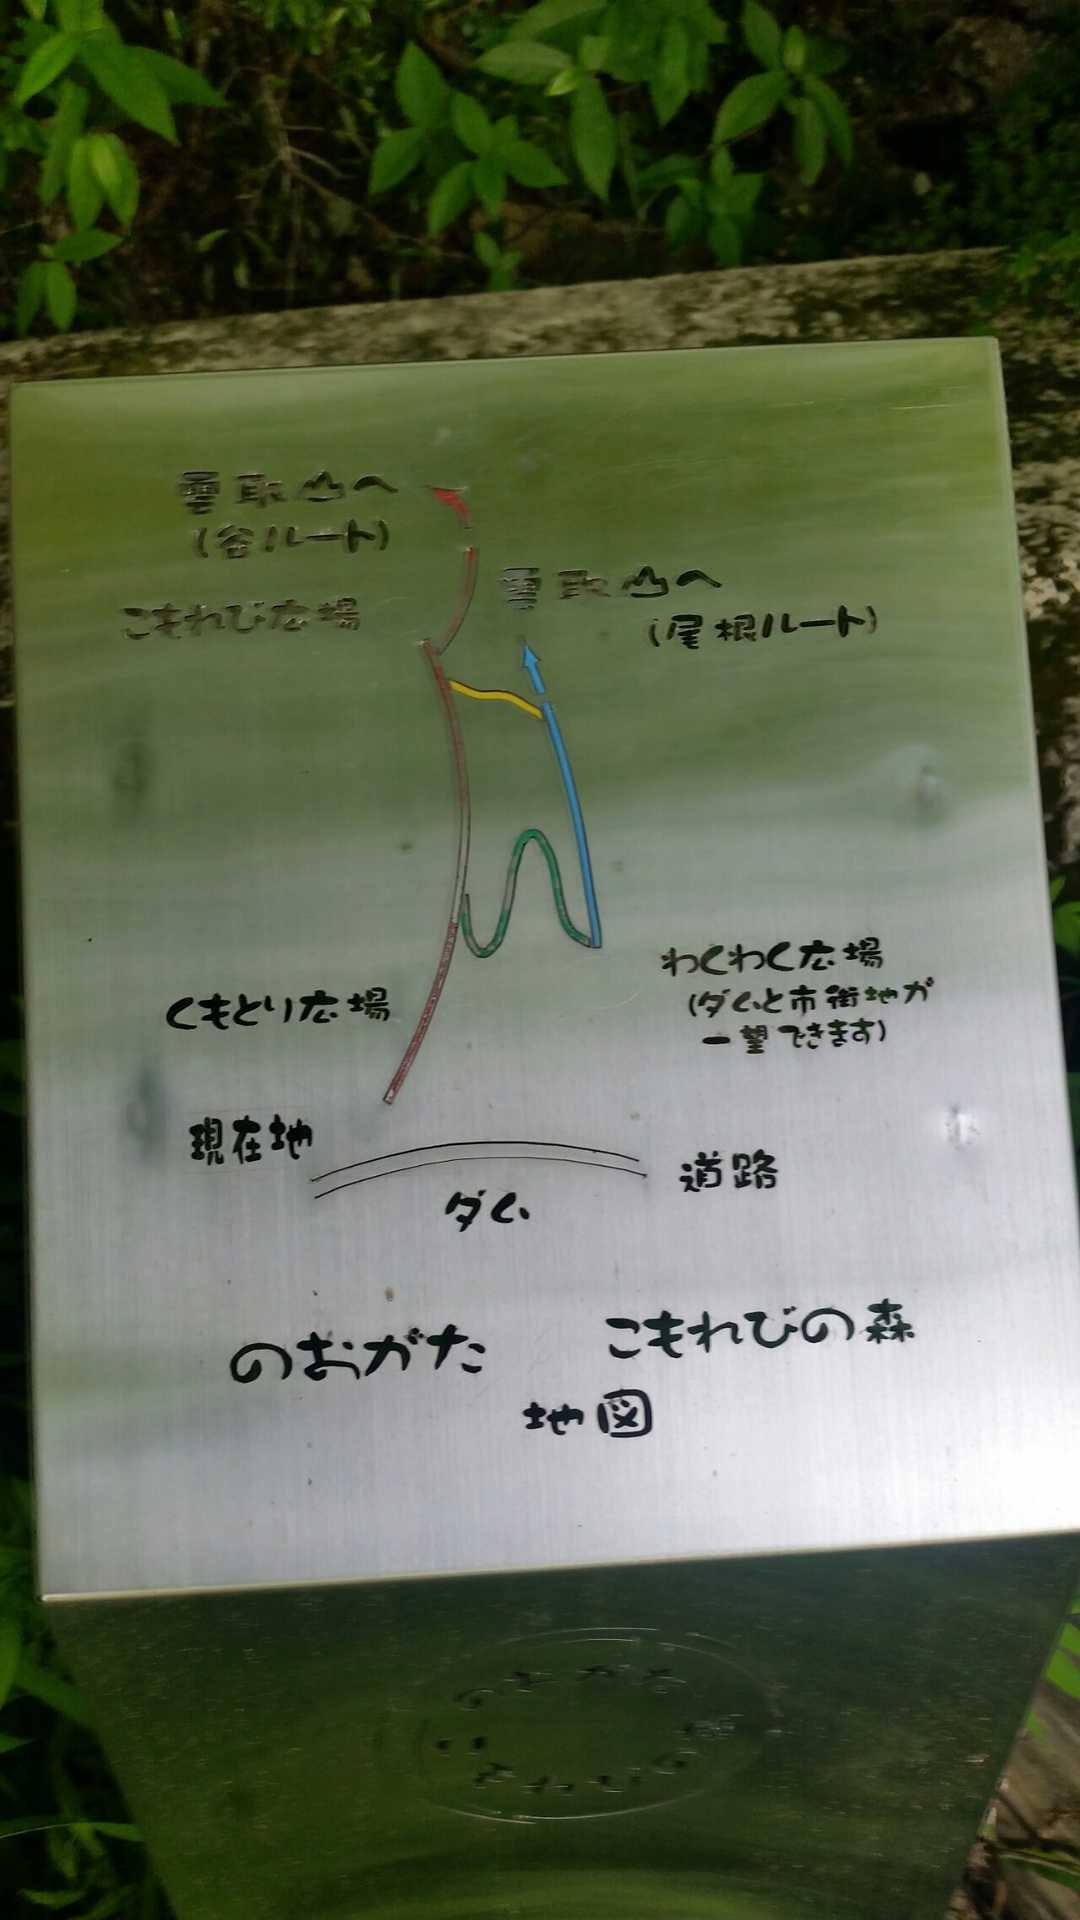 雲取山へ
(谷ルート)
雲取山へ
(尾根ルート)
こもれび広場
わくわく広場
(ダムと市街地が
一望できます)
くもとり広場
現在地
道路
ダム
のおがた こもれびの森
地図